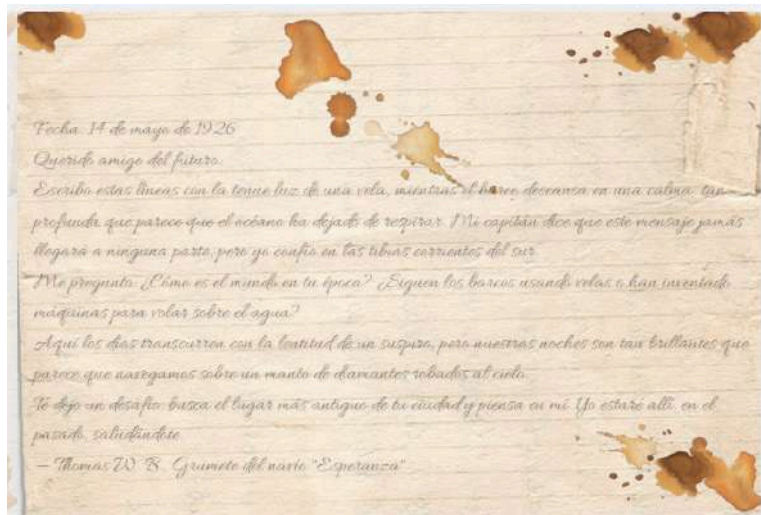 Fecha: 14 de mayo de 1926
Querido amigo del futuro:
Escribo estas líneas con la tenue luz de una vela, mientras el barco descansa en una calma tan
profunda que parece que el océano ha dejado de respirar. Mi capitán dice que este mensaje jamás
llegará a ninguna parte, pero yo confío en las tibias corrientes del sur.
Me pregunto: ¿Cómo es el mundo en tu época? ¿Siguen los barcos usando velas o han inventado
máquinas para volar sobre el agua?
Aquí los días transcurren con la lentitud de un suspiro, pero nuestras noches son tan brillantes que
parece que navegamos sobre un manto de diamantes robados al cielo.
Te dejo un desafío: busca el lugar más antiguo de tu ciudad y piensa en mí. Yo estaré allí, en el
pasado, saludándote.
— Thomas W. B. Grumete del navío "Esperanza"